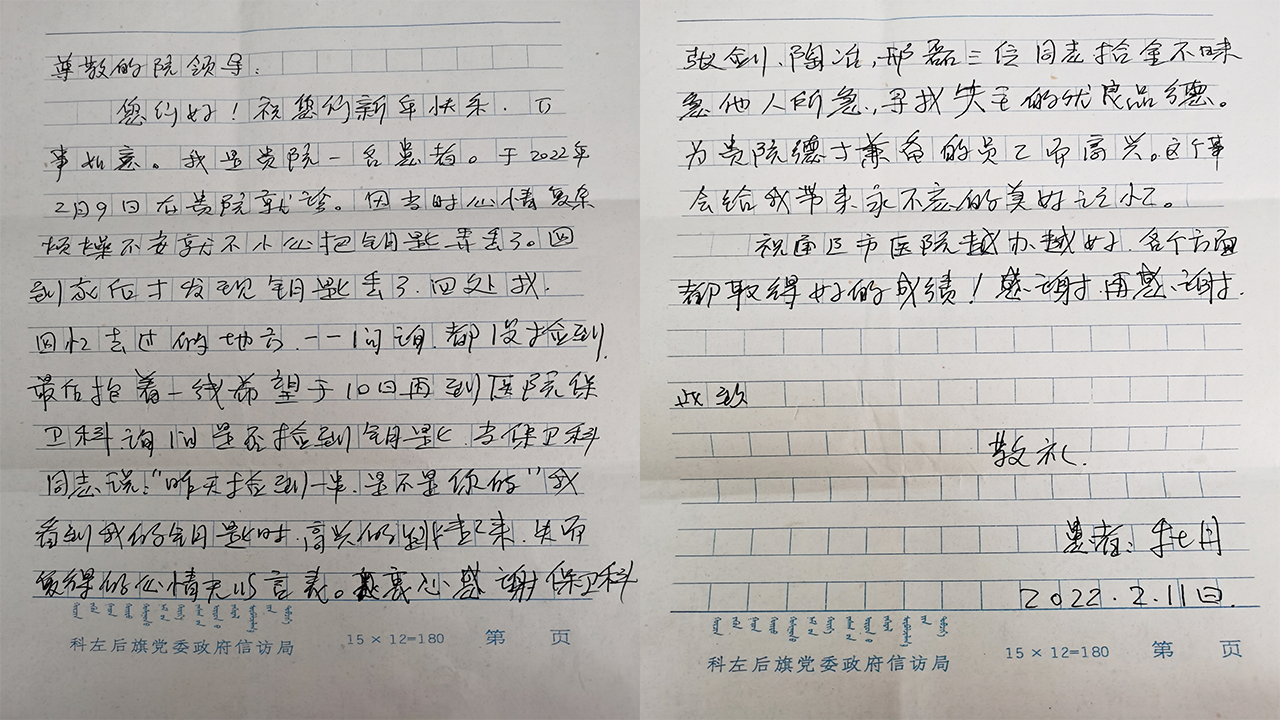 尊敬的院领导：
您们好！祝您们新年快乐，万
事如意。我是贵院一名患者。于2022年
2月9日在贵院就诊。因当时心情复杂
烦燥不安就不小心把钥匙弄丢了。回
到家后才发现钥匙丢了，四处找，
回忆去过的地方，一一问询，都没捡到，
最后抱着一线希望于10日再到医院保
卫科询问是否捡到钥匙，当保卫科
同志说：“昨天捡到一串，是不是你的”我
看到我的钥匙时，高兴的跳起来，失而
复得的心情无以言表。衷心感谢保卫科
科左后旗党委政府信访局 15×12=180 第 页
张剑、陶冶，邢磊三位同志拾金不昧
急他人所急，寻找失主的优良品德。
为贵院德才兼备的员工而高兴。这个事
会给我带来永不忘的美好记忆。
祝通辽市医院越办越好，各个方面
都取得好的成绩！感谢，再感谢，
此致
敬礼，
患者：
2022.2.11日.
科左后旗党委政府信访局 15×12=180 第 页